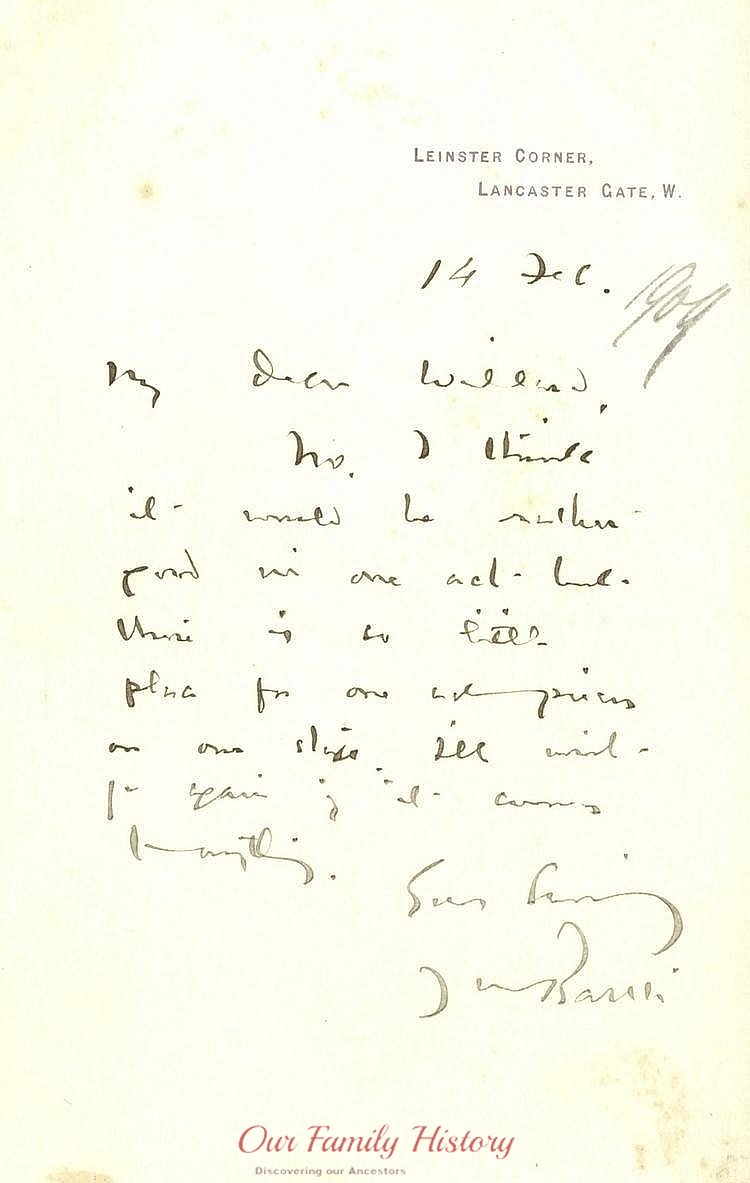 LEINSTER CORNER,
LANCASTER GATE, W.
14 Dec. 1904
My dear Willard,
No. I think
it would be rather
good in one act but
there is so little
place for one act pieces
on our stage. I'll write
you again if it comes
to anything.
Yours
J M Barrie
Our Family History
Discovering our Ancestors